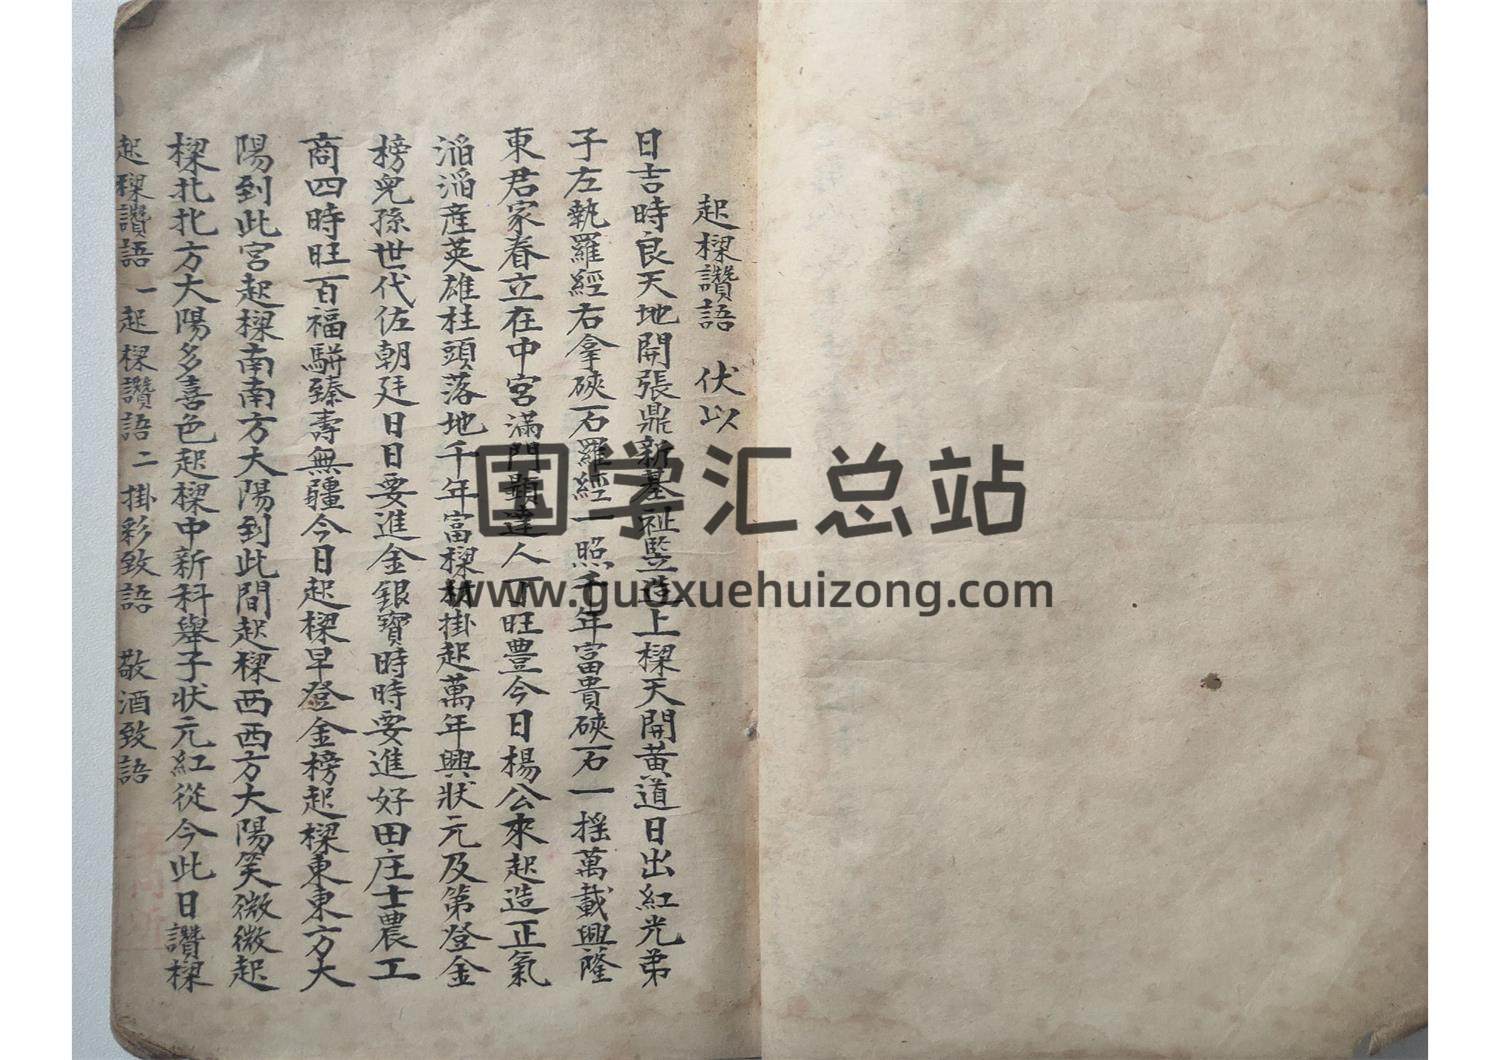 起樑讚語 伏以
日吉時良天地開張鼎新基祉竪造上樑天開黃道日出紅光弟
子左執羅經右拿硤石羅經一照千年富貴硤石一搖萬載興隆
東君家春立在中宮滿門顯達人丁旺豊今日楊公來起造正氣
滔滔産英雄柱頭落地千年富樑木掛起萬年興狀元及第登金
榜兒孫世代佐朝廷日日要進金銀寶時時要進好田庄士農工
商四時旺百福駢臻壽無疆今日起樑早登金榜起樑東東方大
陽到此宮起樑南南方大陽到此間起樑西西方大陽笑微微起
樑北北方大陽多喜色起樑中新科舉子狀元紅從今此日讚樑
起樑讚語一起樑讚語二掛彩致語 敬酒致語
国学汇总站
www.guoxuehuizong.com